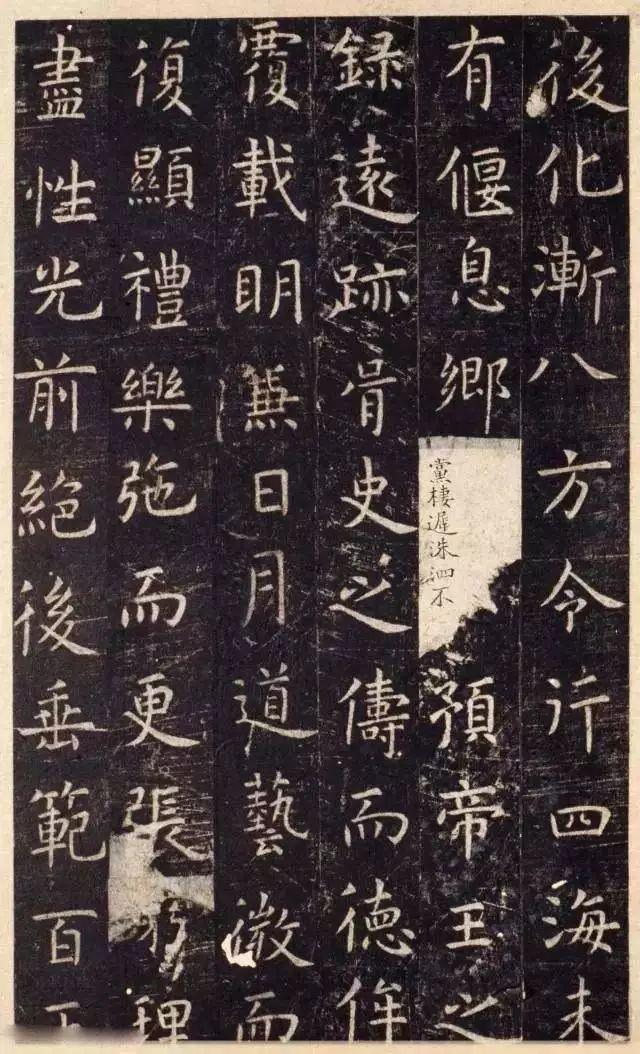 後化漸八方令行四海未
有偃息鄉
黨棲遲洙泗不
預帝王之
録遠跡胥史之儔而德侔
覆載明兼日月道藝微而
復顯禮樂弛而更張理
盡性光前絕後垂範百